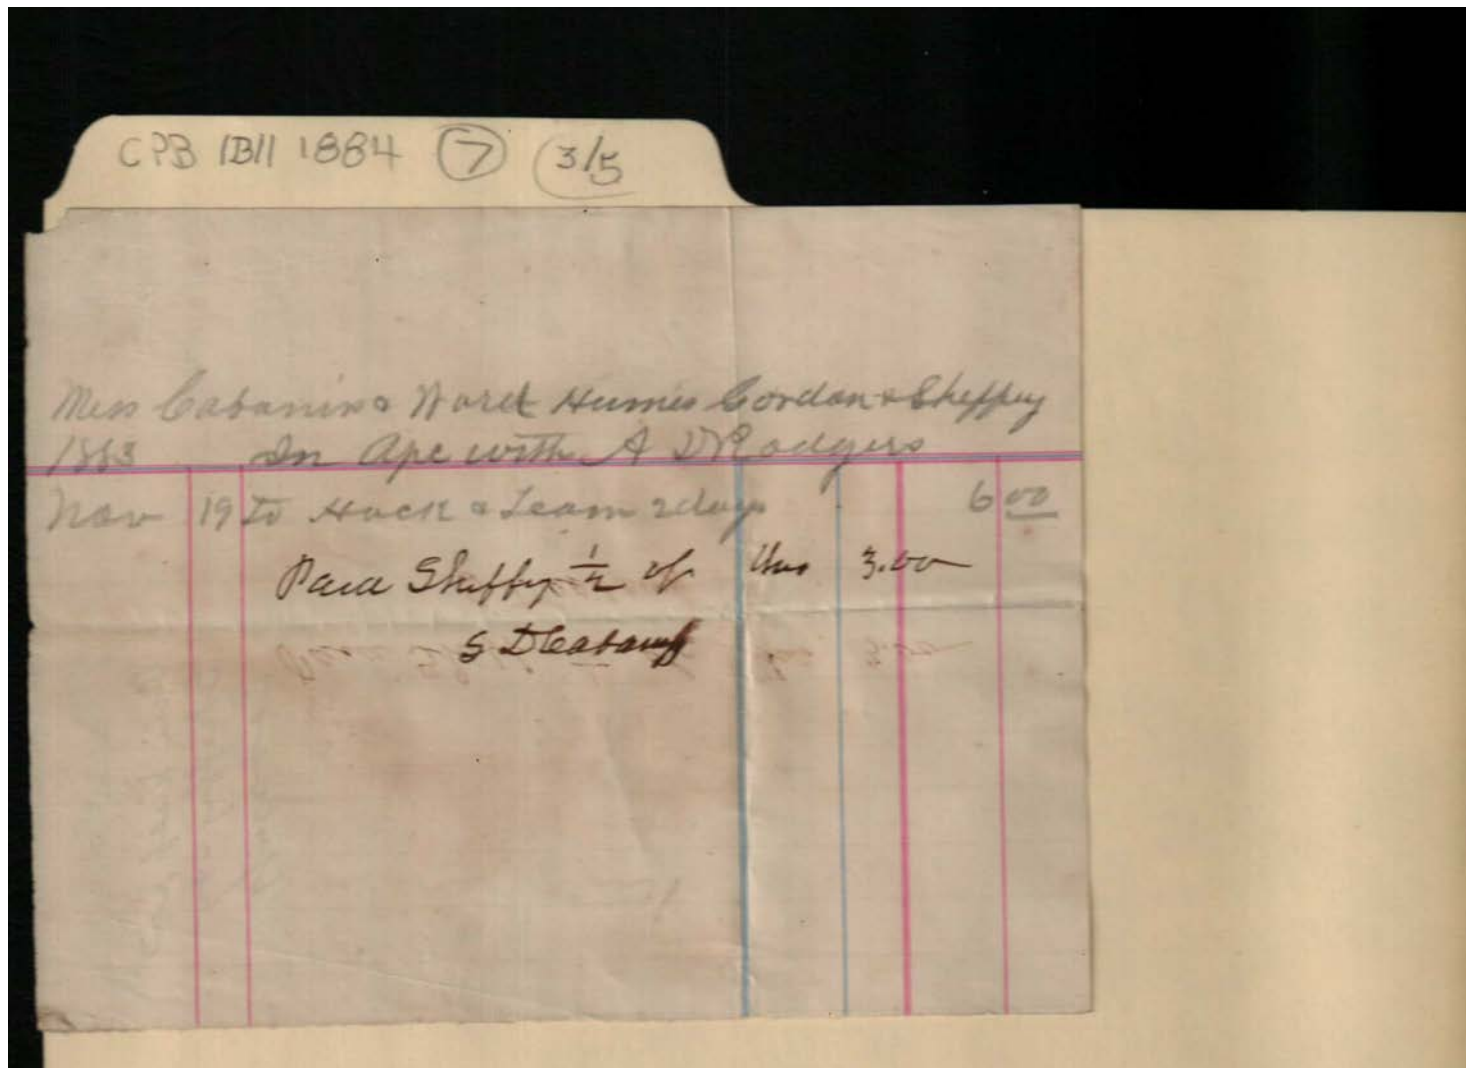 CPB 1B11 1884 7 3/5
Mess Cabaniss & Ward Humes Gordon & Sheffey
1883 In Apc with A D Rodgers
Nov 19 To Hack & Team 2 days 6 00
Paid Sheffey 1/2 of this 3.00
S D Cabaniss